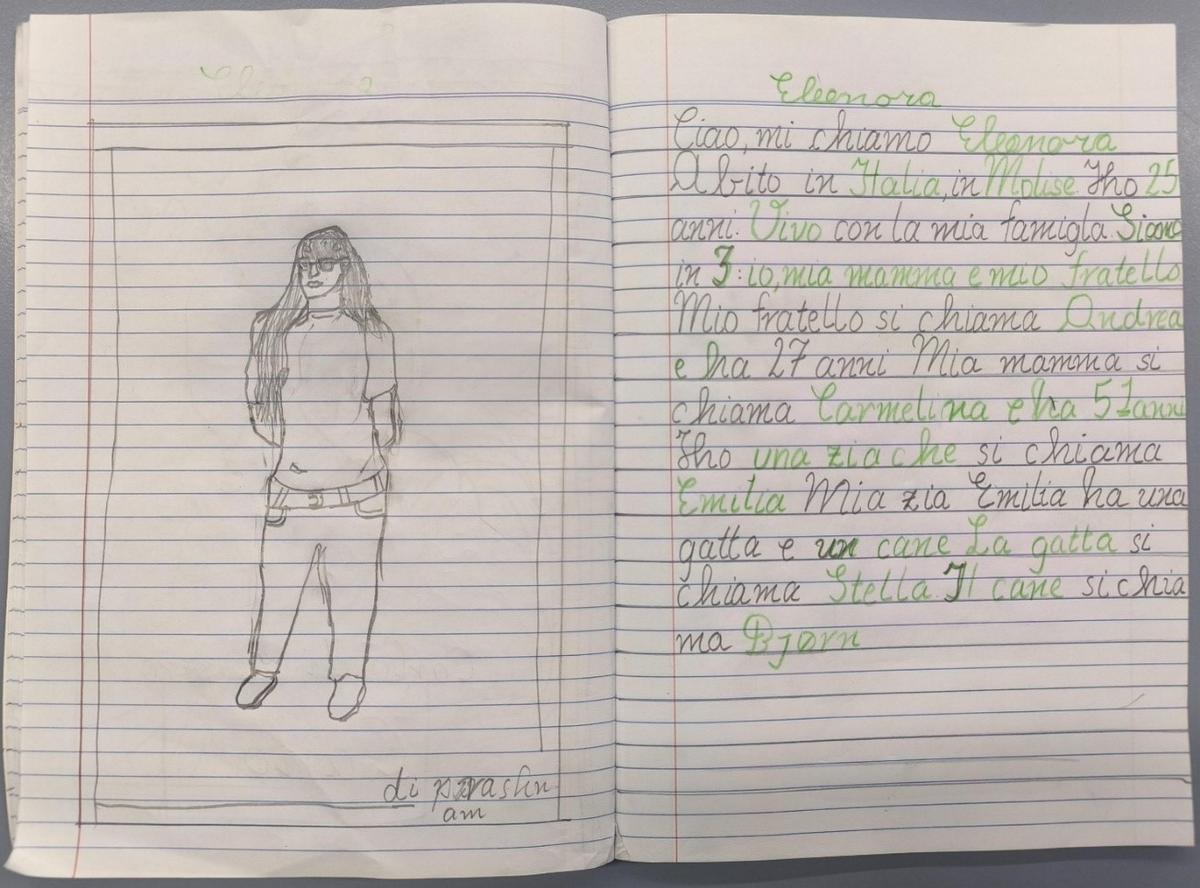 di
am
Eleonora
Ciao, mi chiamo Eleonora
Abito in Italia, in Molise. Iho 25
anni. Vivo con la mia famigla. Siamo
in 3: io, mia mamma e mio fratello
Mio fratello si chiama Andrea
e ha 27 anni Mia mamma si
chiama Carmelina e ha 51 anni
Iho una zia che si chiama
Emilia Mia zia Emilia ha una
gatta e un cane La gatta si
chiama Stella. Il cane si chia
ma Bjørn